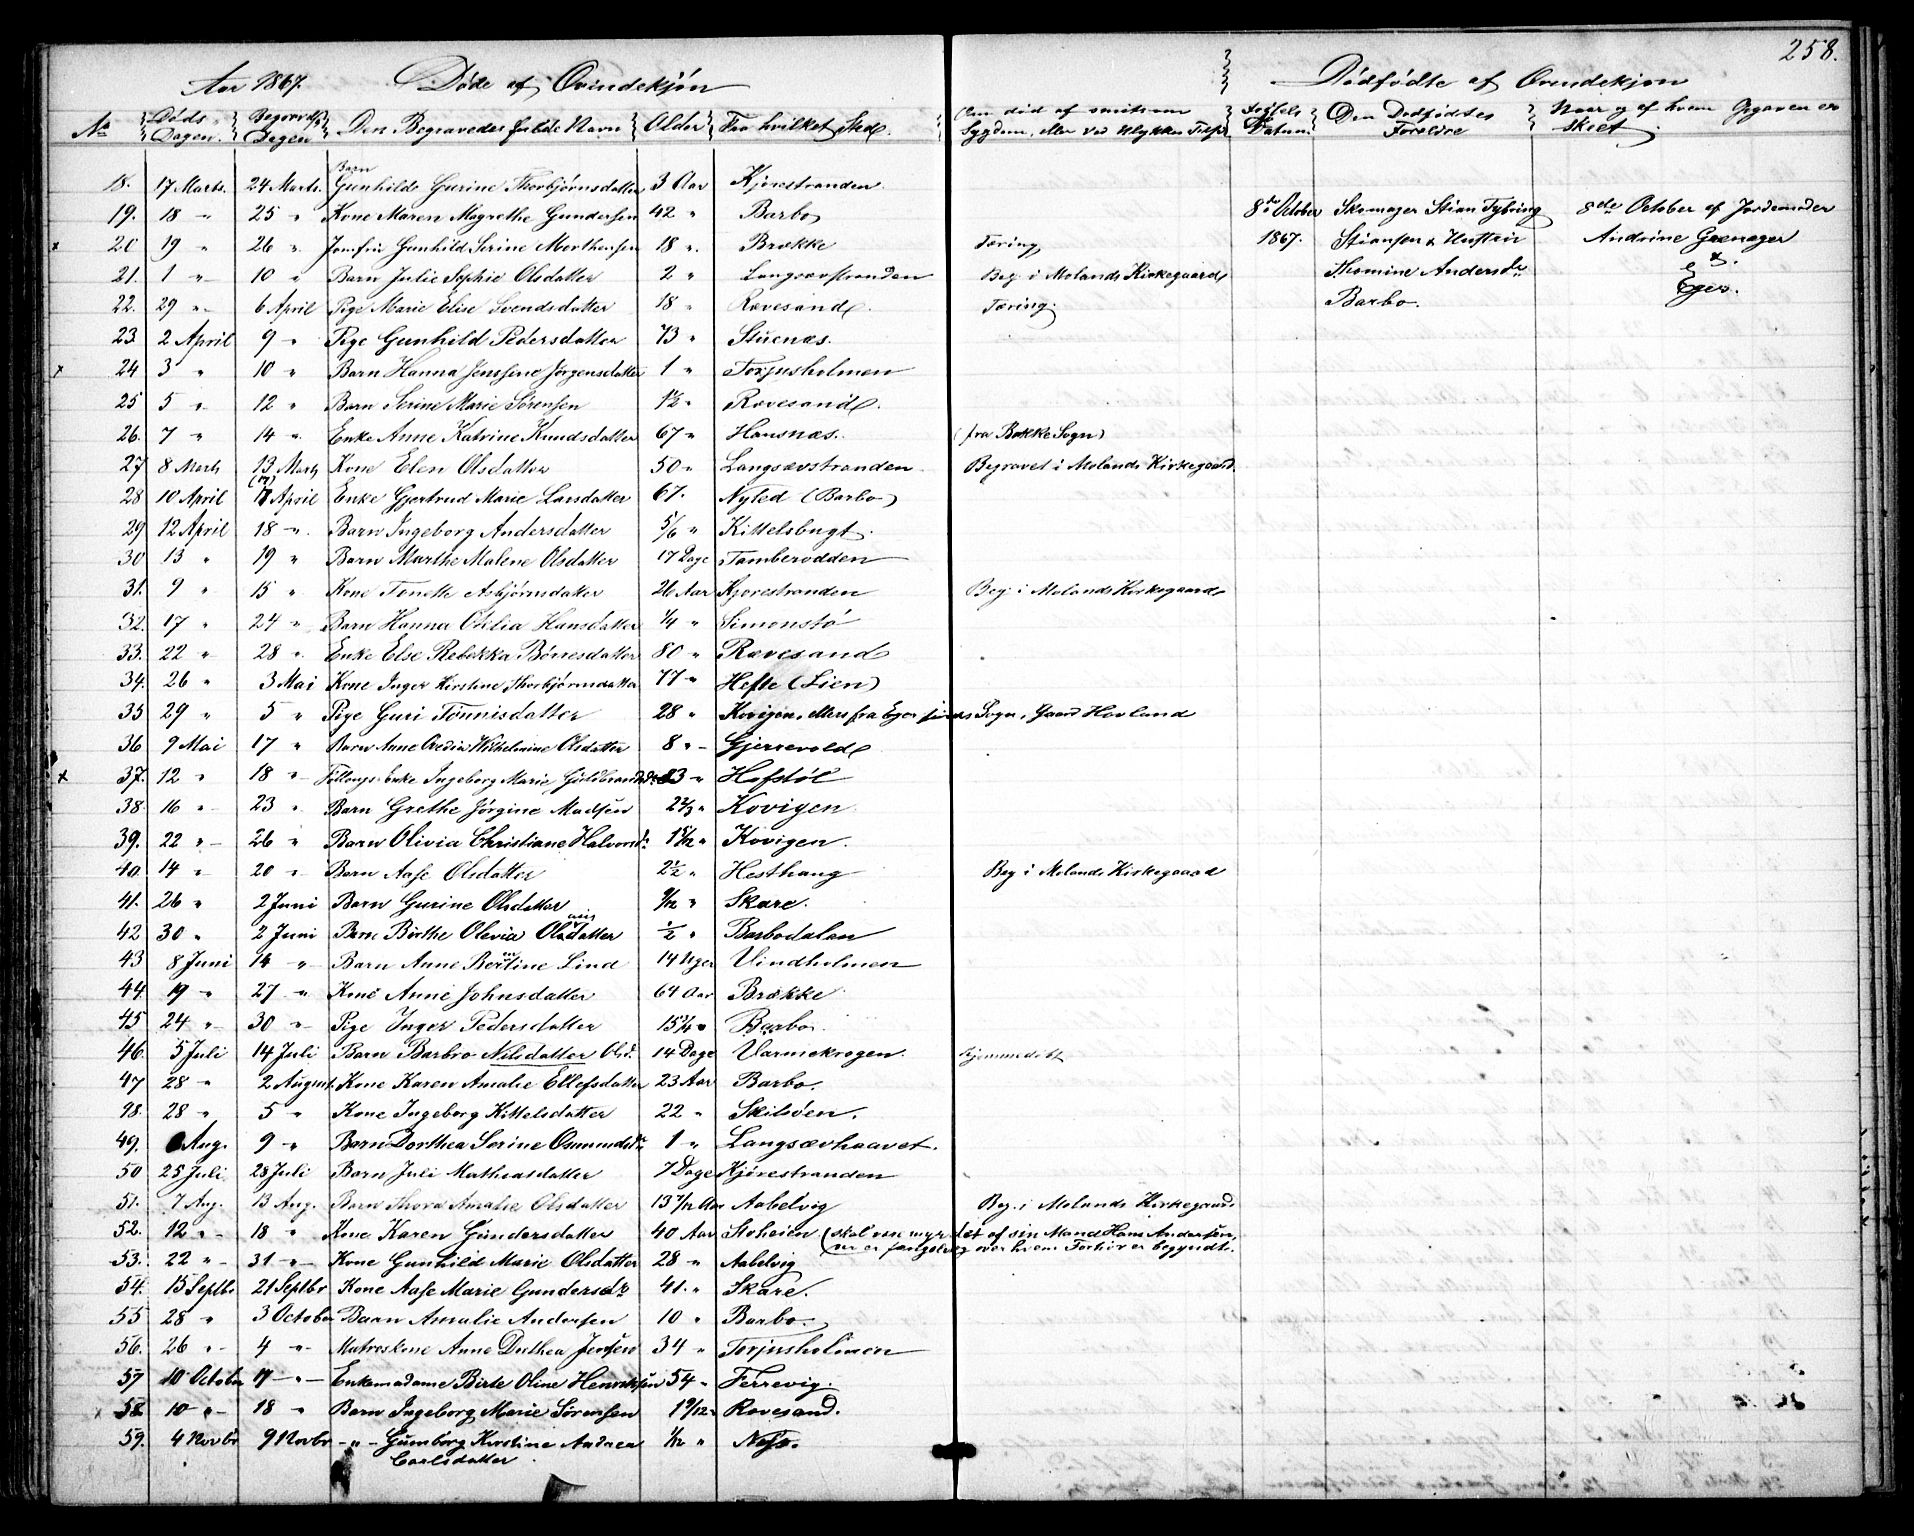 258.
Aar 1867. Døde af Qvindekjøn Dødfødte af Qvindekjøn
No Døds Dagen. Begravels Dagen Den Begravedes fulde Navn Alder Fra hvilket Sted. Om død af smitsom Sygdom, eller ved Ulykkes Tilf. Fødsels Datum. Den Dødfødtes Forældre Naar og af hvem Opgaven er skeet.
18. 17 Marts. 24 Marts. Barn Gunhild Gurine Thorbjørnsdatter 3 Aar Kjørestranden.
19. 18 " 25 " Kone Maren Magrethe Gundersen 42 " Barbo 8de October Skomager Stian Tybring 8de October af Jordemoder
x 20 19 " 26 " Jomfru Gunhild Serine Morthensen 18 " Brække Tæring 1867. Stiansen & Hustru Andrine Grenager
21. 1 " 10 " Barn Julie Sophie Olsdatter 2 " Langsævstranden Beg. i Molands Kirkegaard Thomine Andersdr
22. 29 " 6 April Pige Marie Elise Svendsdatter 18 " Rævesand. Tæring. Barbo. Eger.
23 2 April 9 " Pige Gunhild Pedersdatter 73 " Stuenæs.
x 24 3 " 10 " Barn Hanna Jensine Jørgensdatter 1 " Torjusholmen
25 5 " 12 " Barn Serine Marie Sørensen 1½ " Rævesand.
26. 7 " 14 " Enke Anne Katrine Knudsdatter 67 " Hansnæs. (fra Bakke Sogn)
27 8 Marts 13 Marts Kone Elen Olsdatter 50 " Langsævstranden Begravet i Molands Kirkegaard.
28 10 April (17) 17 April Enke Gjertrud Marie Larsdatter 67. Nyted (Barbo)
29 12 April 18 " Barn Ingeborg Andersdatter 5/6 " Kittelsbugt.
30 13 " 19 " Barn Marthe Malene Olsdatter 17 Dage Tamberodden
31. 9 " 15 " Kone Tonette Asbjørnsdatter 26 Aar Kjørestranden Beg. i Molands Kirkegaard
32. 17 " 24 " Barn Hanna Otilia Hansdatter ¼ " Simonstø
33. 22 " 28 " Enke Else Rebekka Børresdatter 80 " Rævesand
34. 26 " 3 Mai Kone Inger Kirstine Thorbjørnsdatter 77 " Hefte (Lien)
35 29 " 5 " Pige Guri Tønnisdatter 28 " Kovigen, ellers fra Egersunds Sogn, Gaard Hovland
36 9 Mai 17 " Barn Anne Wilhelmine Olsdatter 8 " Gjerrevold
x 37. 12 " 18 " Follougs Enke Ingeborg Marie Guldbrandsd. 83 " Hofstøl
38. 16 " 23 " Barn Grethe Jørgine Madsen 2⅔ " Kovigen
39. 22 " 26 " Barn Olivia Christiane Halvorsdr 1 5/12 " Kovigen.
40. 14 " 20 " Barn Aase Olsdatter 2½ " Hesthaug Beg. i Molands Kirkegaard
41. 26 " 2 Juni Barn Gurine Olsdatter 9/12 " Skare.
42 30 " 2 Juni Barn Birthe Olevia Olsdatter ½ " Barbodalen
43 8 Juni 14 " Barn Anne Bertine Lind 14 Uger Vindholmen
44. 19 " 27 " Kone Anne Johnsdatter 64 Aar Brække
45 24 " 30 " Pige Inger Pedersdatter 15¼ " Barbo.
46. 5 Juli 14 Juli Barn Barbro Nilsdatter Olsd. 14 Dage Varmekrogen. Hjemmedøbt
47 28 " 2 August. Kone Karen Amalie Ellefsdatter 23 Aar Barbo.
48. 28 " 5 " Kone Ingeborg Kittelsdatter 22 " Skilsøen.
49. Aug. 9 " Barn Dorthea Serine Osmundsdr 1 " Langsævhaavet.
50 25 Juli 28 Juli Barn Juli Mathiasdatter 7 Dage Kjørestranden
51. 7 Aug. 13 Aug. Barn Thora Amalie Olsdatter 13 7/12 Aar Aabelvig Beg. i Molands Kirkegaard
52. 12 " 18 " Kone Karen Gundersdatter 40 Aar Stoheien (skal være myrdet af sin Mand Hans Andersen,
nu er fængslig over hvem Forhør er begyndt.
53. 22 " 31 " Kone Gunhild Marie Olsdatter 28 " Aabelvig
54. 15 Septbr 21 Septbr Kone Aase Marie Gundersdr 41. " Skare.
55 28 " 3 October Barn Amalie Andersen 10 " Barbo.
56. 26 " 4 " Matroskone Anne Duthea Jensen 34 " Torjusholmen
57 10 October 17 " Enkemadame Birte Oline Henriksen 54 " Ferrevig.
x 58 10 " 18 " Barn Ingeborg Marie Sørensen 1 9/12 " Rævesand.
59. 4 Novbr 9 Novbr " Gunborg Kirstine Andrea 1/12 " Næs.
Carlsdatter